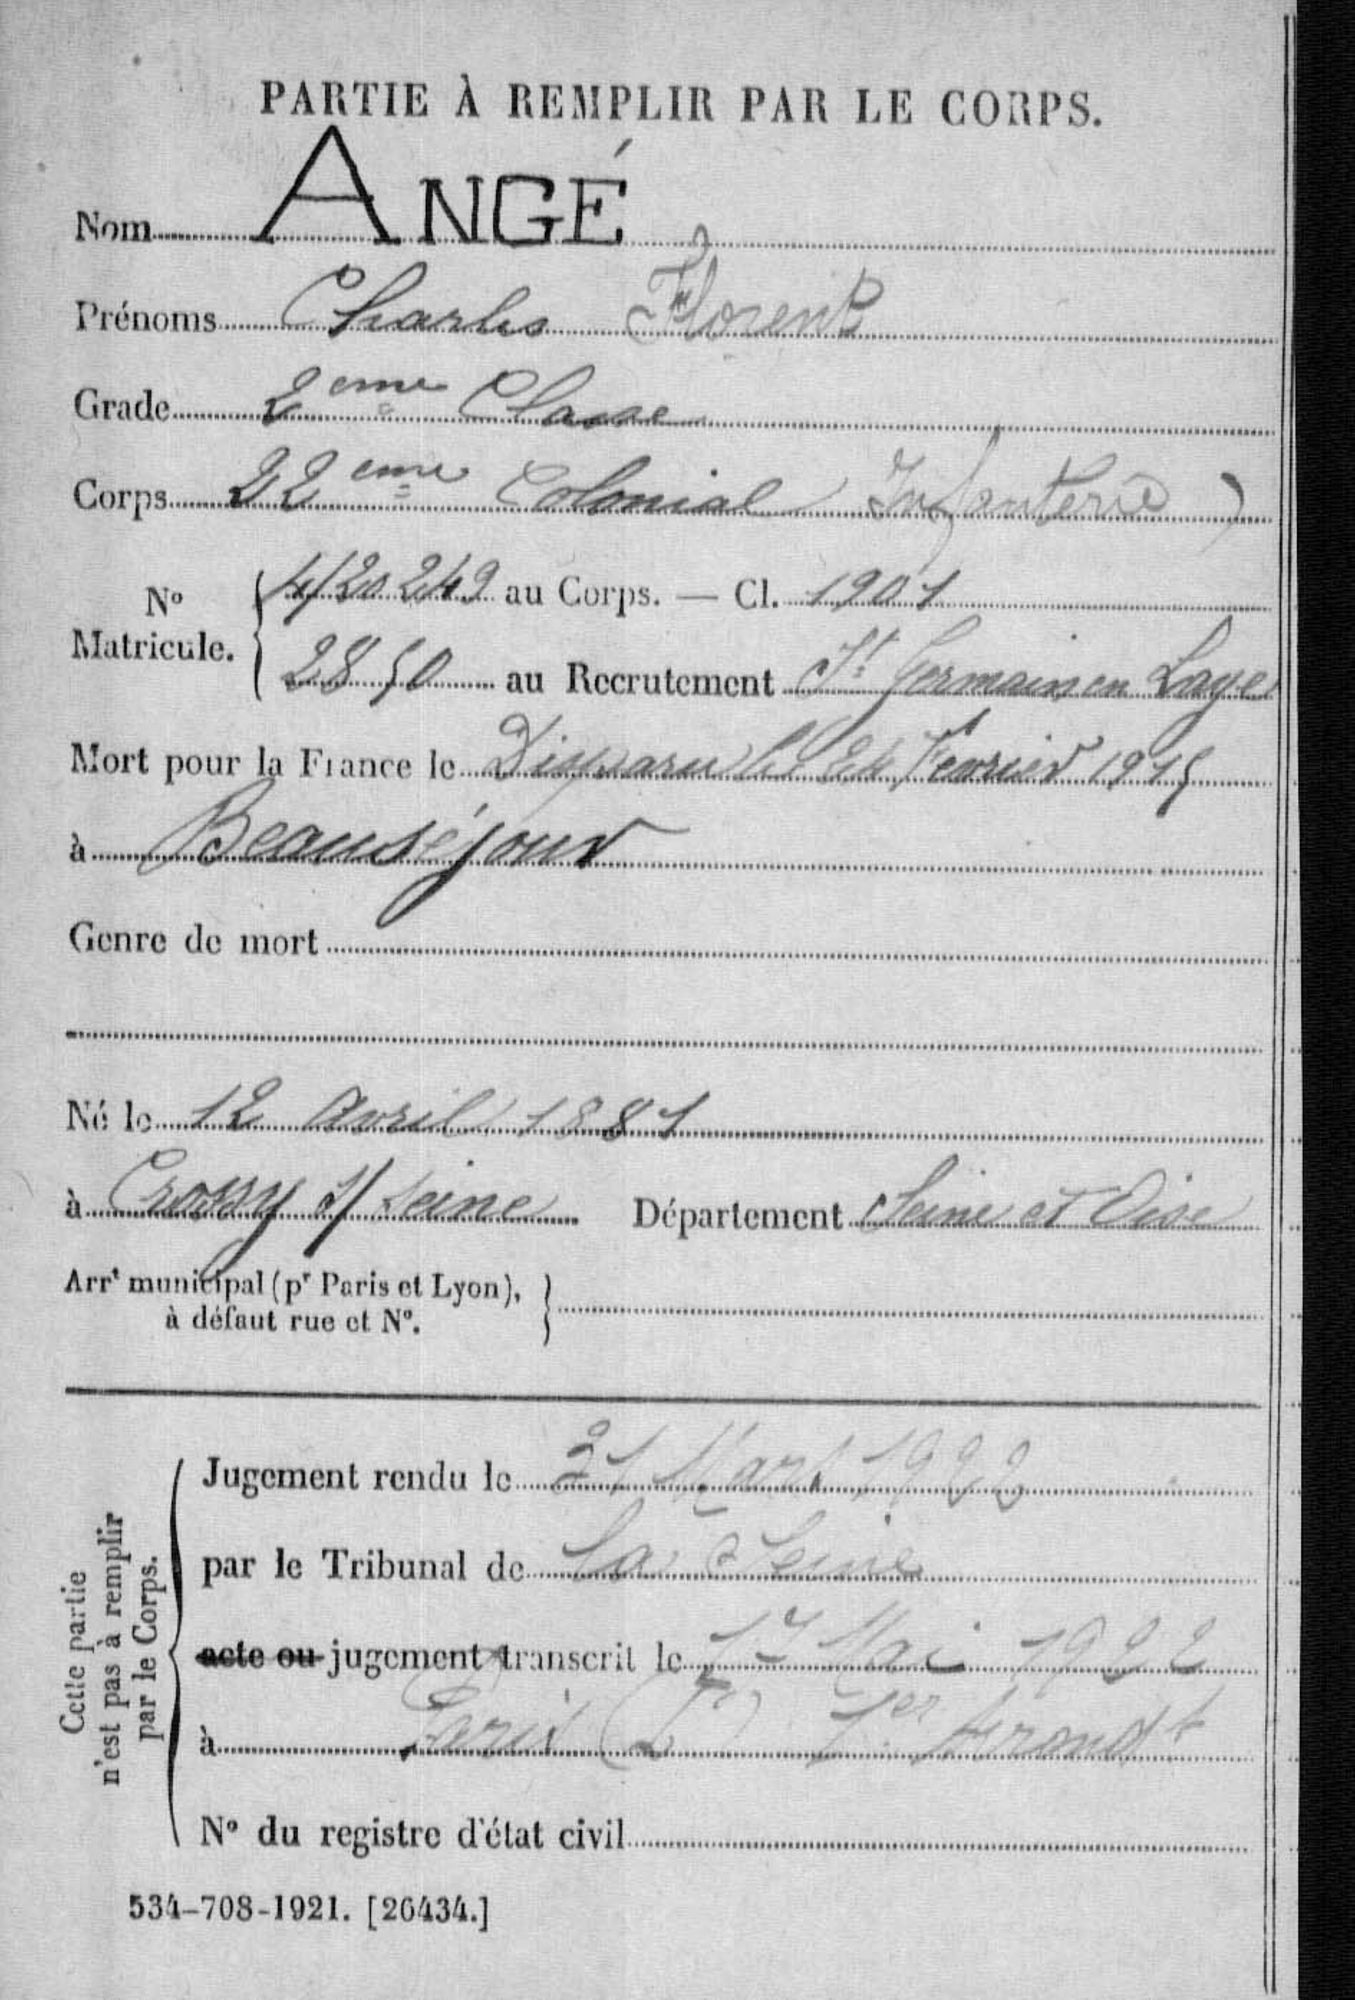 PARTIE À REMPLIR PAR LE CORPS.
Nom ANGÉ
Prénoms Charles Florent
Grade 2eme Classe
Corps 22eme Colonial (Infanterie)
N° Matricule. 4/20 249 au Corps. — Cl. 1901
2850 au Recrutement St Germain en Laye
Mort pour la France le Disparu le 24 Février 1915
à Beauséjour
Genre de mort
Né le 12 Avril 1881
à Croissy s/ Seine Département Seine et Oise
Arrt municipal (pr Paris et Lyon),
à défaut rue et N°.
Cette partie
n'est pas à remplir
par le Corps.
Jugement rendu le 31 Mars 1922
par le Tribunal de la Seine
acte ou jugement transcrit le 17 Mai 1922
à Paris 1er Arrondt
N° du registre d'état civil
534-708-1921. [26434.]